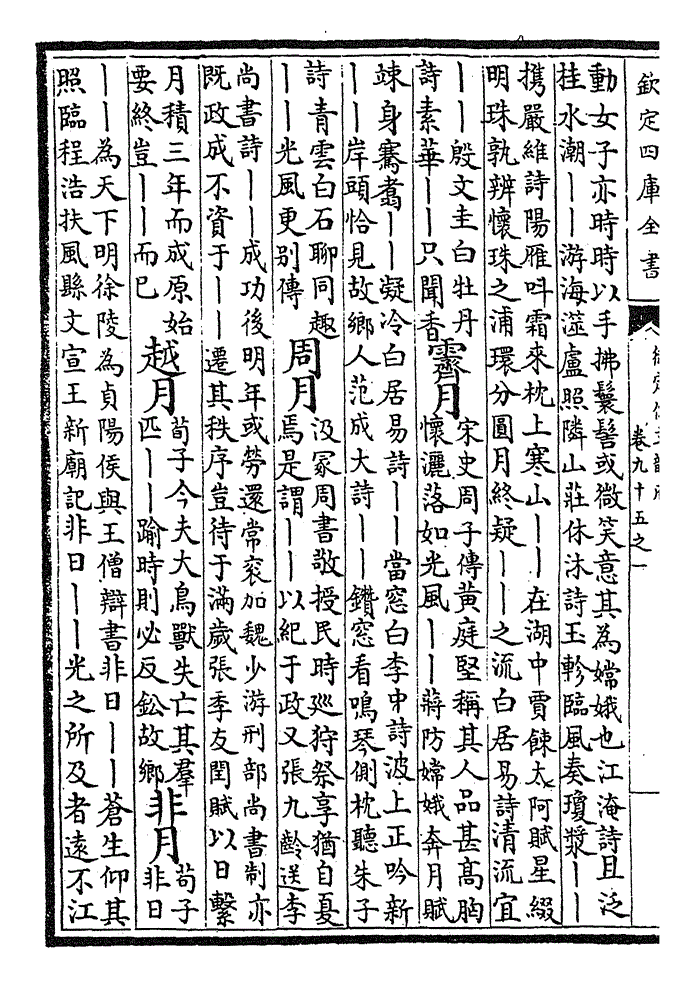 欽定四庫全書
卷九十五之一
動女子亦時時以手拂鬟髻或微笑意其為嫦娥也江淹詩且泛
桂水潮丨丨游海澨盧照隣山莊休沐詩玉軫臨風奏瓊漿丨丨
携嚴維詩陽雁呌霜來枕上寒山丨丨在湖中賈餗太阿賦星綴
明珠孰辨懷珠之浦環分圓月終疑丨丨之流白居易詩清流宜
丨丨殷文圭白牡丹
詩素華丨丨只聞香
霽月
宋史周子傳黃庭堅稱其人品甚高胸
懷灑落如光風丨丨蔣防嫦娥奔月賦
竦身騫翥丨丨凝冷白居易詩丨丨當窓白李中詩波上正吟新
丨丨岸頭恰見故鄉人范成大詩丨丨鑽窓看鳴琴側枕聽朱子
詩青雲白石聊同趣
丨丨光風更别傳
周月
汲冢周書敬授民時巡狩祭享猶自夏
焉是謂丨丨以紀于政又張九齡送李
尚書詩丨丨成功後明年或勞還常衮加魏少游刑部尚書制亦
既政成不資于丨丨遷其秩序豈待于滿歲張季友閏賦以日繫
月積三年而成原始
要終豈丨丨而已
越月
荀子今夫大鳥獸失亡其羣
匹丨丨踰時則必反鈆故鄉
非月
荀子
非日
丨丨為天下明徐陵為貞陽侯與王僧辯書非日丨丨蒼生仰其
照臨程浩扶風縣文宣王新廟記非日丨丨光之所及者遠不江